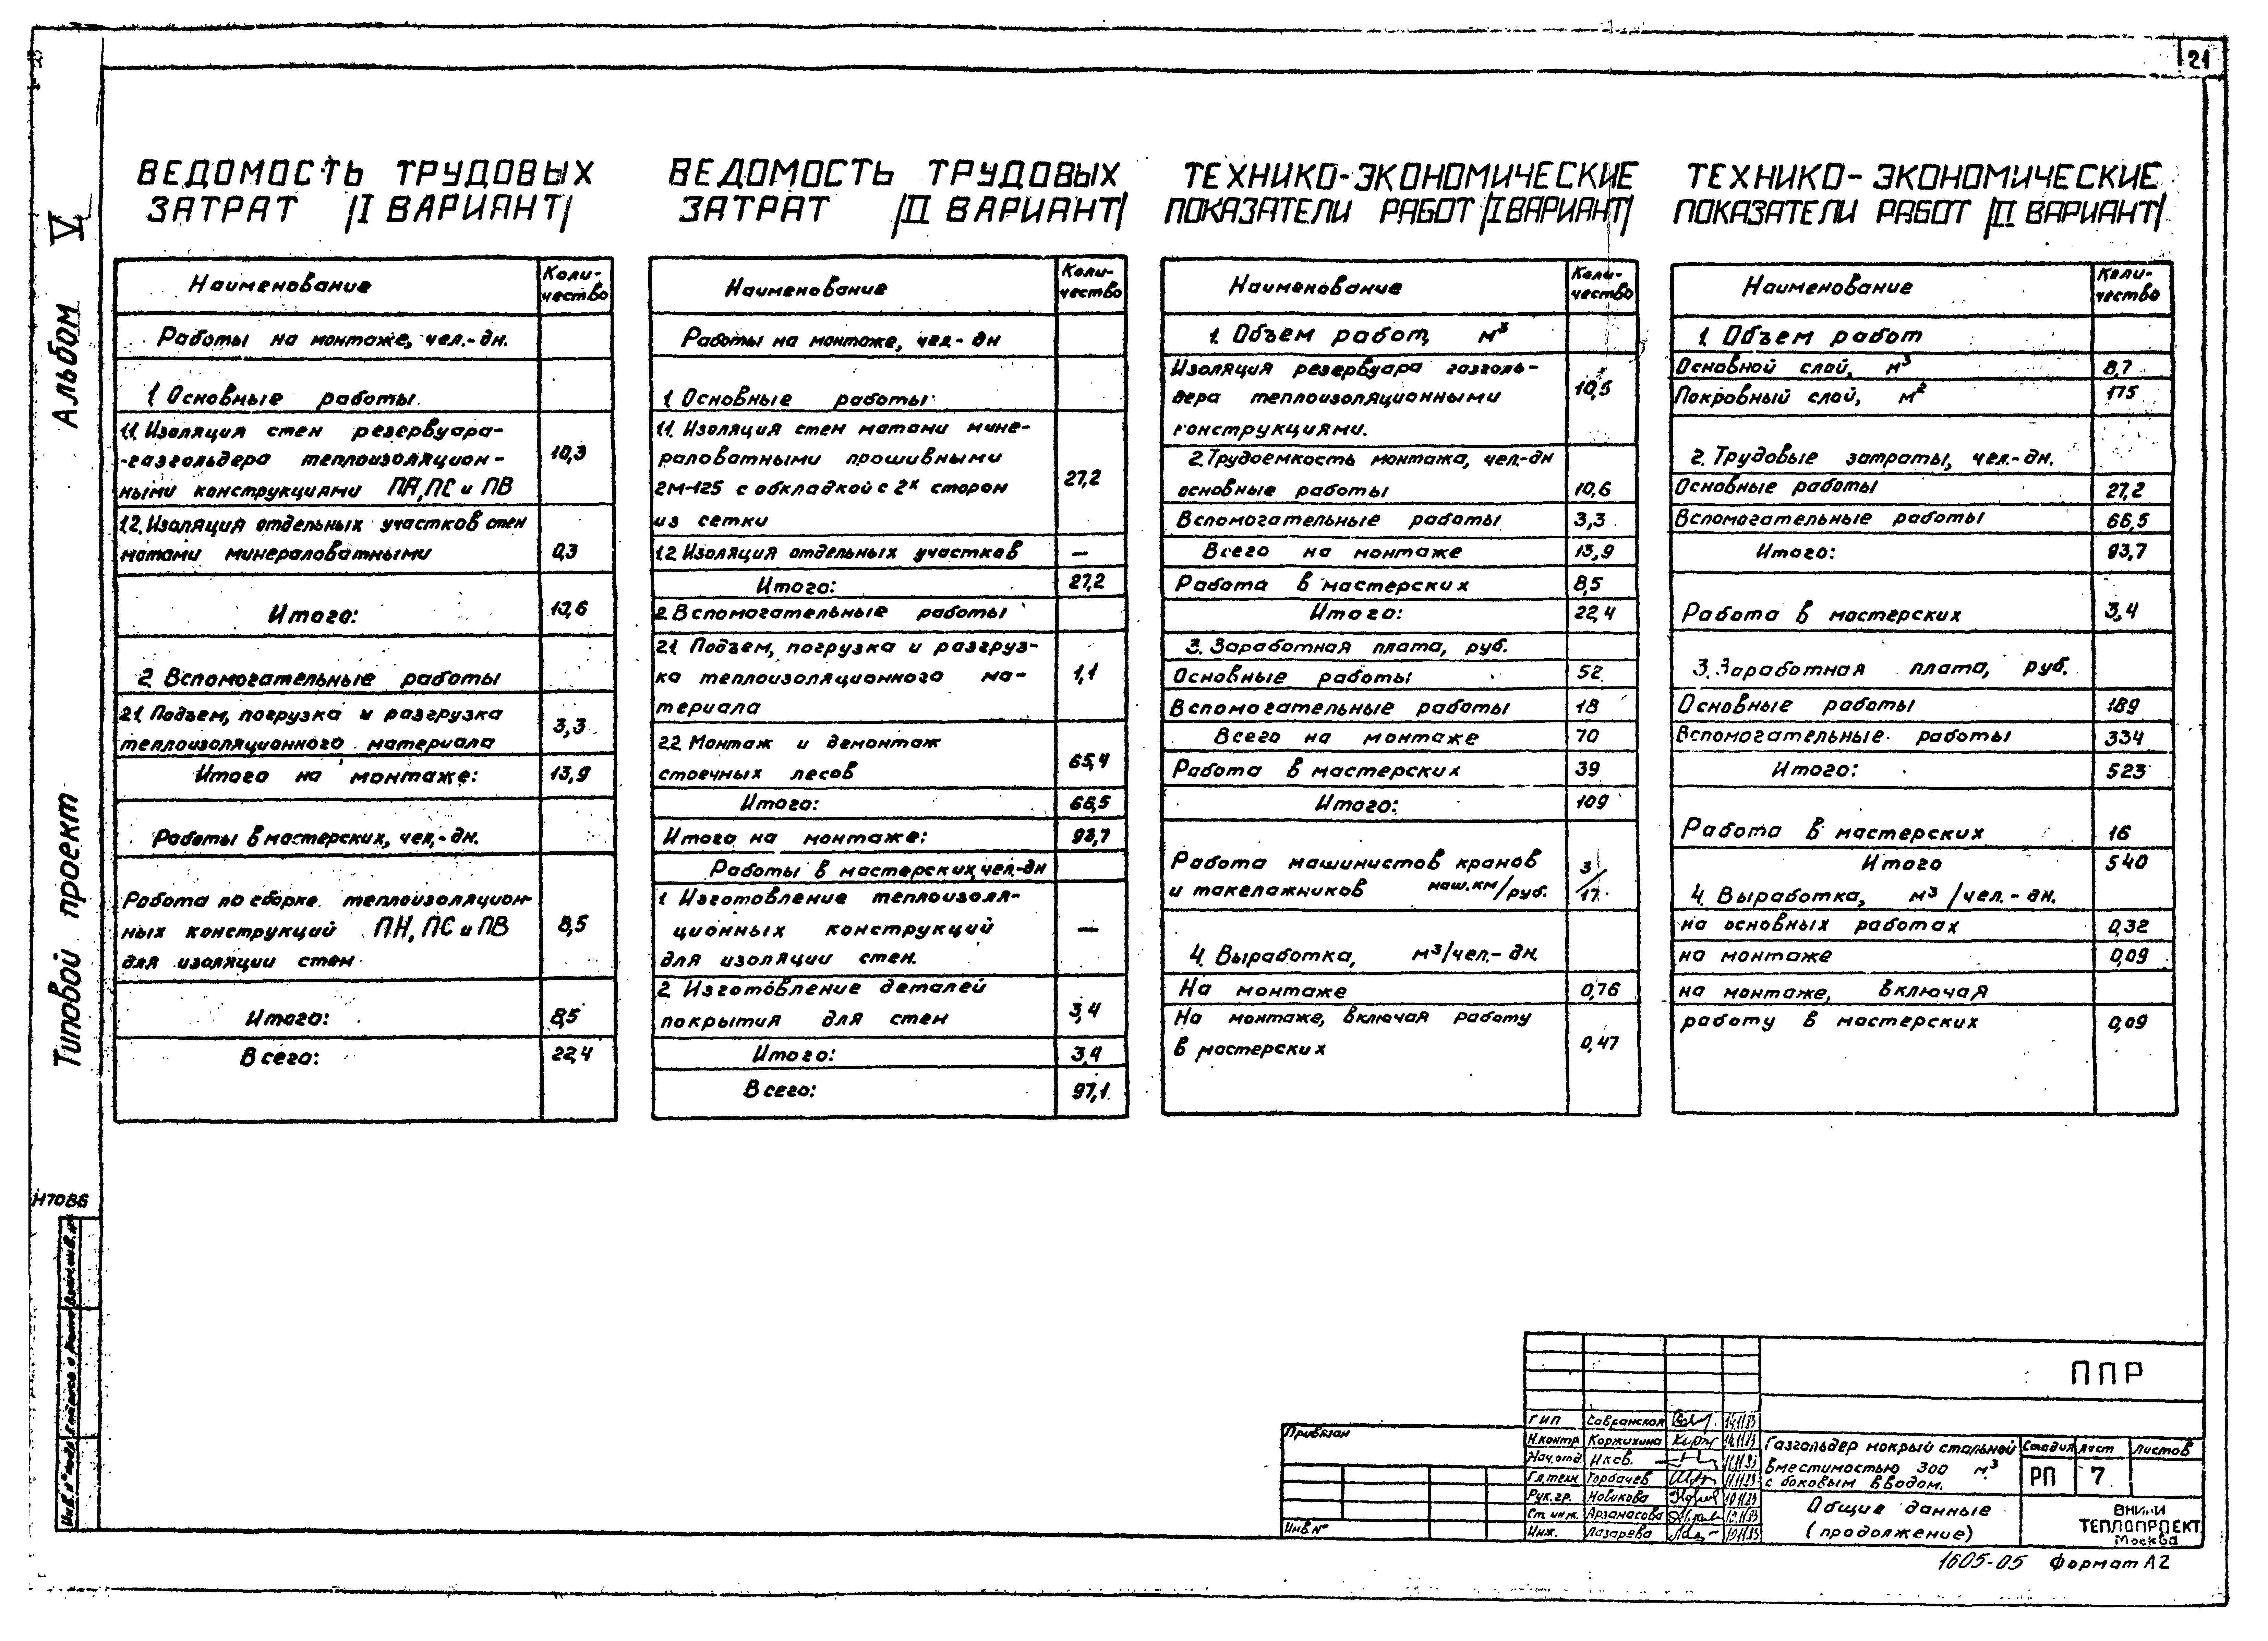 21
Альбом V
Типовой проект
Н7086
ВЕДОМОСТЬ ТРУДОВЫХ
ЗАТРАТ /I ВАРИАНТ/
Наименование
Коли-
чество
Работы на монтаже, чел.-дн.
1. Основные работы
1.1. Изоляция стен резервуара-
-газгольдера теплоизоляцион-
ными конструкциями ПН, ПС и ПВ
10,3
1.2. Изоляция отдельных участков стен
матами минераловатными
0,3
Итого:
10,6
2. Вспомогательные работы
2.1. Подъем, погрузка и разгрузка
теплоизоляционного материала
3,3
Итого на монтаже:
13,9
Работы в мастерских, чел,-дн.
Работа по сборке теплоизоляцион-
ных конструкций ПН, ПС и ПВ
для изоляции стен
8,5
Итого:
8,5
Всего:
22,4
ВЕДОМОСТЬ ТРУДОВЫХ
ЗАТРАТ /II ВАРИАНТ/
Наименование
Коли-
чество
Работы на монтаже, чел-дн
1. Основные работы
1.1. Изоляция стен матами мине-
раловатными прошивными
2М-125 с обкладкой с 2х сторон
из сетки
27,2
1.2. Изоляция отдельных участков
—
Итого:
27,2
2. Вспомогательные работы
2.1. Подъем, погрузка и разгруз-
ка теплоизоляционного ма-
териала
1,1
2.2. Монтаж и демонтаж
стоечных лесов
65,4
Итого:
66,5
Итого на монтаже:
93,7
Работы в мастерских, чел.-дн
1. Изготовление теплоизоля-
ционных конструкций
для изоляции стен.
—
2. Изготовление деталей
покрытия для стен
3,4
Итого:
3,4
Всего:
97,1
ТЕХНИКО-ЭКОНОМИЧЕСКИЕ
ПОКАЗАТЕЛИ РАБОТ /I ВАРИАНТ/
Наименование
Коли-
чество
1. Объем работ, м³
Изоляция резервуара газголь-
дера теплоизоляционными
конструкциями.
10,5
2. Трудоемкость монтажа, чел-дн
основные работы
10,6
Вспомогательные работы
3,3
Всего на монтаже
13,9
Работа в мастерских
8,5
Итого:
22,4
3. Заработная плата, руб.
Основные работы
52
Вспомогательные работы
18
Всего на монтаже
70
Работа в мастерских
39
Итого:
109
Работа машинистов кранов
и такелажников маш.км/руб.
3/17
4. Выработка, м³/чел.-дн.
На монтаже
0,76
На монтаже, включая работу
в мастерских
0,47
ТЕХНИКО-ЭКОНОМИЧЕСКИЕ
ПОКАЗАТЕЛИ РАБОТ /II ВАРИАНТ/
Наименование
Коли-
чество
1. Объем работ
Основной слой, м³
8,7
Покровный слой, м²
175
2. Трудовые затраты, чел.-дн.
Основные работы
27,2
Вспомогательные работы
66,5
Итого:
93,7
Работа в мастерских
3,4
3. Заработная плата, руб.
Основные работы
189
Вспомогательные работы
334
Итого:
523
Работа в мастерских
16
Итого
540
4. Выработка, м³/чел.-дн.
на основных работах
0,32
на монтаже
0,09
на монтаже, включая
работу в мастерских
0,09
Привязан
Инв №
ГИП Савранская 14.11.83
Н.контр Коржихина 14.11.83
Нач.отд. 11.11.83
Гл.техн Горбачев 11.11.83
Рук.гр. Новикова 10.11.83
Ст. инж. Арзамасова 10.11.83
Инж. Лазарева 10.11.83
ППР
Газгольдер мокрый стальной
вместимостью 300 м³
с боковым вводом.
Стадия Лист Листов
РП 7
Общие данные
(продолжение)
ТЕПЛОПРОЕКТ
Москва
1605-05 Формат А2
Инв. № подл. Подпись и дата Взам.инв. №